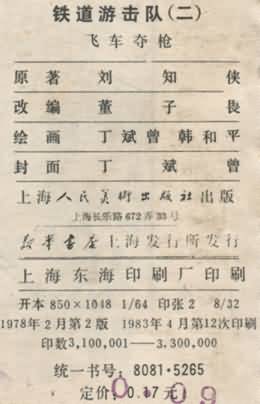 铁道游击队(二)
飞车夺枪
原著 刘知侠
改编 董子畏
绘画 丁斌曾 韩和平
封面 丁斌曾
上海人民美術出版社出版
上海长乐路672弄33号
新华書店上海发行所发行
上海东海印刷厂印刷
开本 850×1048 1/64 印张2 8/32
1978年2月第2版 1983年4月第12次印刷
印数3,100,001——3,300,000
统一书号: 8081·5265
定价: 0.17元
0.09